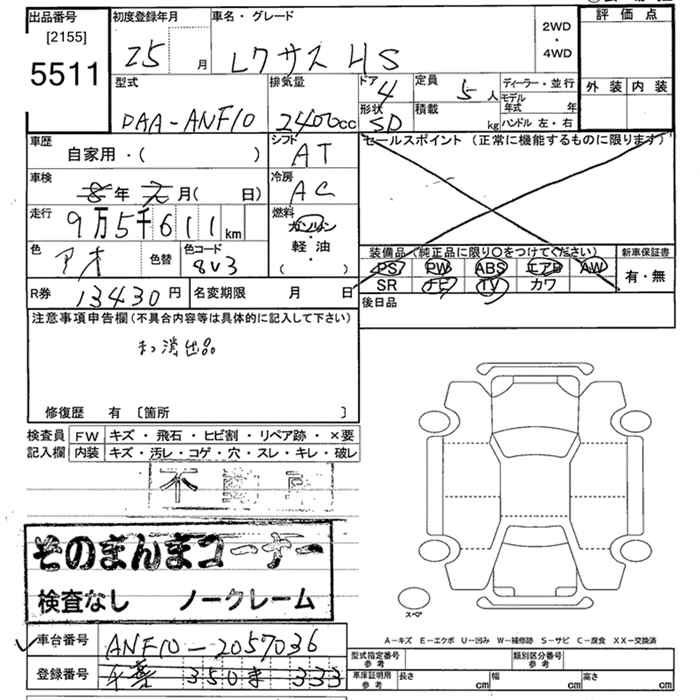 出品番号
[2155]
5511
初度登録年月
25 月
車名・グレード
レクサス HS
2WD
・
4WD
評価点
外装 内装
型式
DAA-ANF10
排気量
2400cc
ドア
4
形状
SD
定員
5人
積載
kg
ディーラー・並行
モデル
年式 年
ハンドル 左・右
車歴
自家用・( )
シフト
AT
セールスポイント (正常に機能するものに限ります)
車検
年 月( 日)
冷房
AC
走行
9万5千611km
燃料
ガソリン
軽・油
( )
色
アオ
色替
色コード
8V3
装備品(純正品に限り○をつけてください)
PS PW ABS エアB AW
SR ナビ TV カワ
新車保証書
有・無
R券 13430円
名変期限 月 日
後日品
注意事項申告欄(不具合内容等は具体的に記入して下さい)
抹消出品
修復歴 有 [箇所 ]
検査員 FW キズ・飛石・ヒビ割・リペア跡・×要
記入欄 内装 キズ・汚レ・コゲ・穴・スレ・キレ・破レ
不
そのまんまコーナー
検査なし ノークレーム
スペア
A－キズ E－エクボ U－凹み W－補修跡 S－サビ C－腐食 XX－交換済
車台番号 ANF10-2057036
登録番号 千葉 350 ま 333
型式指定番号
参考
類別区分番号
参考
車庫証明用
参考
長さ cm 幅 cm 高さ cm